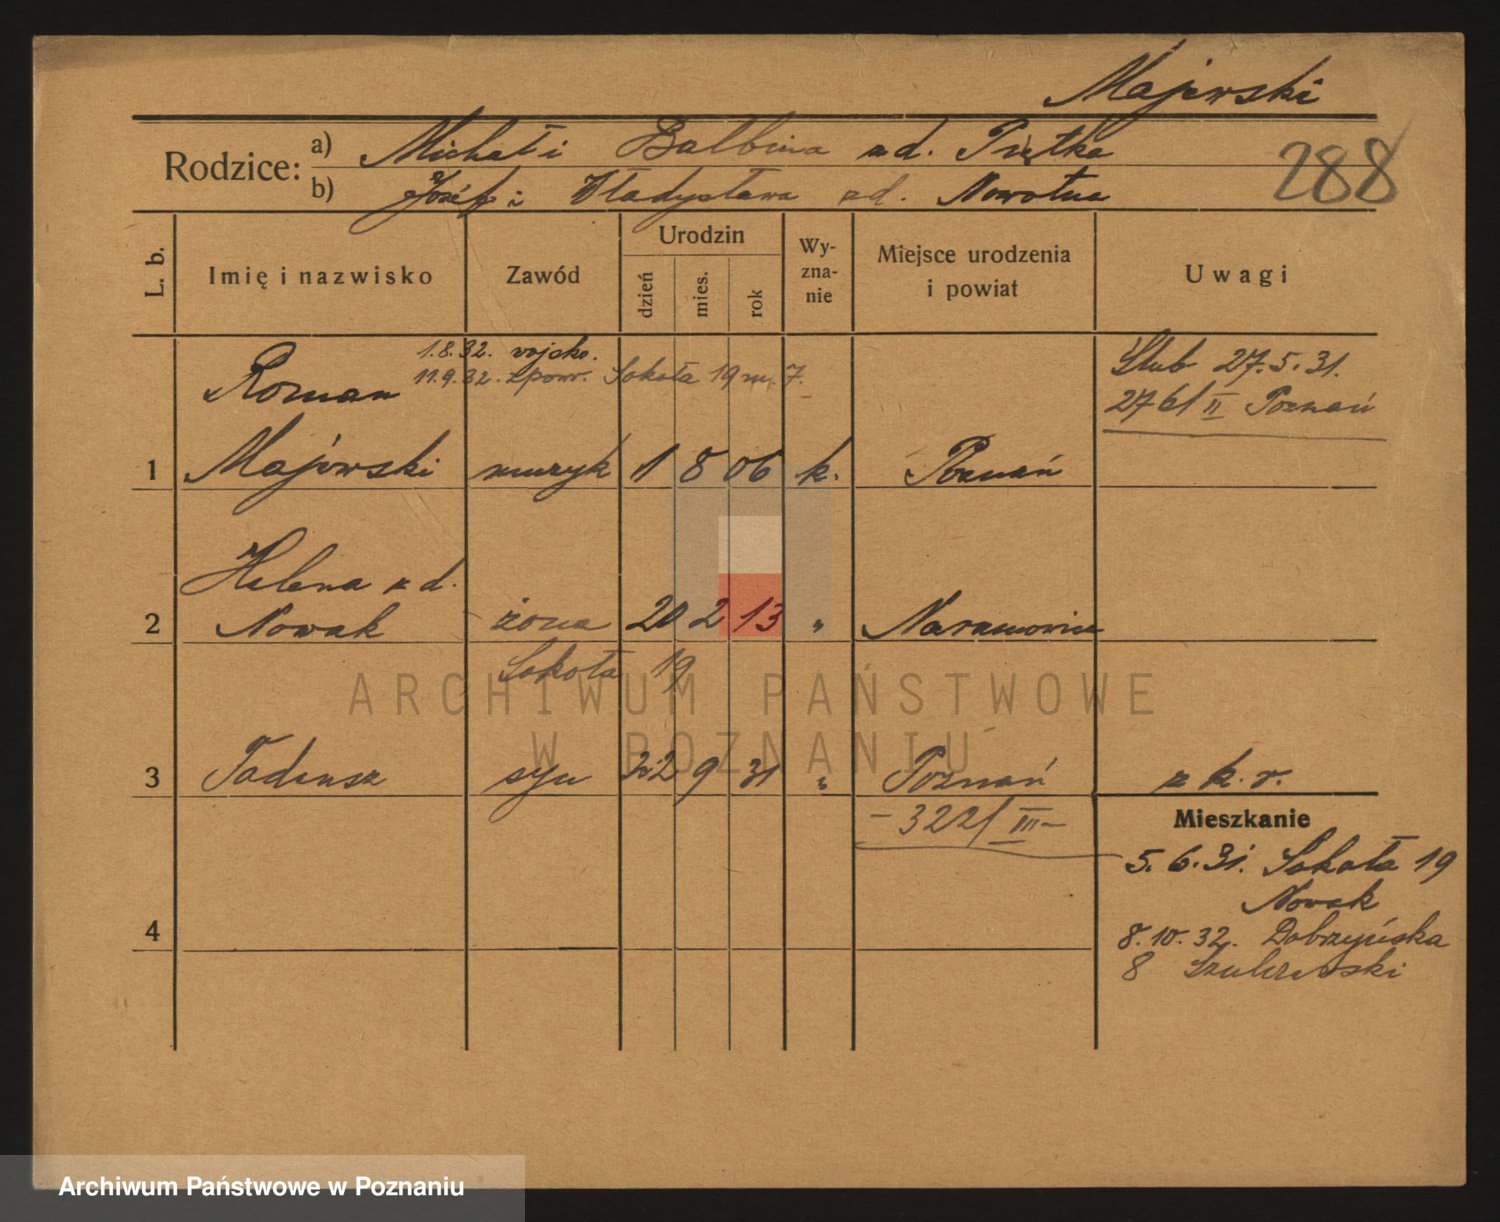 Majewski
Rodzice: a) Michał i Balbina z d. Prętka
b) Józef i Władysława z d. Nowotna
288
L. b.
Imię i nazwisko
Zawód
Urodzin
dzień
mies.
rok
Wy-
zna-
nie
Miejsce urodzenia
i powiat
Uwagi
1.8.32. wojsko.
11.9.32. z pow. Sokoła 19 m. 7.
Roman
Ślub 27.5.31.
276/II Poznań
1 Majewski muzyk 1 8 06 k. Poznań
Helena z d.
2 Nowak żona 20 2 13 " Naramowice
Sokoła 19
ARCHIWUM PAŃSTWOWE
W POZNANIU
3 Tadeusz syn 22 9 31 " Poznań z k. r.
- 3221/III -
Mieszkanie
5.6.31. Sokoła 19
Nowak
4
8.10.32. Dobrzyńska
8
Archiwum Państwowe w Poznaniu